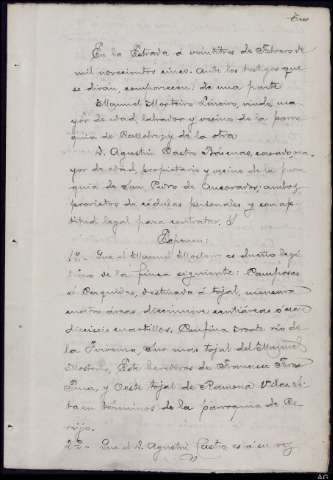 En la Estrada á veintitres de Febrero de
mil novecientos cinco. Ante los testigos que
se dirán, comparecen: de una parte
Manuel Monteiro viudo, ma-
yor de edad, labrador y vecino de la parro-
quia de y de la otra
D. Agustin Castro casado, ma-
yor de edad, propietario y vecino de la parro
quia de San Pedro de Ancorados; ambos
provistos de cédulas personales y con ap-
titud legal para contratar.
Exponen:
1º- Que el Manuel es dueño legí
timo de la finca siguiente:
ó destinada á tojal, mensura
áreas, diecinueve centiáreas ó sea
dieciseis cuartillos. Confina Norte rio de
la Sur mas tojal del Manuel
Este herederos de Francisco
y Oeste tojal de Ramona si-
ta en términos de la parroquia de
2º- Que el D. Agustin Castro está en vez